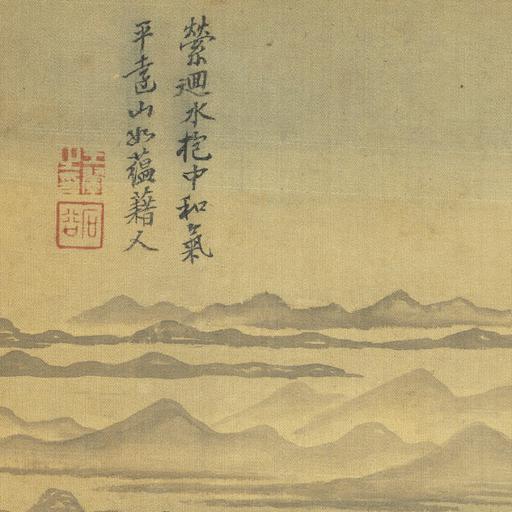 縈迴水抱中和氣
平遠山如蘊藉人